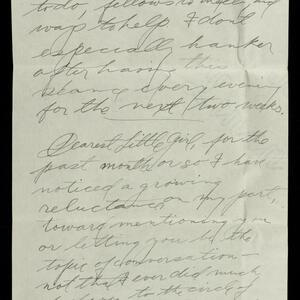 to do, fellows
way to help I don't
especially hanker
after having this
seance every evening
for the next two weeks.
Dearest Little Girl, for the
past month or so I have
noticed a growing
reluctance on my part,
toward mentioning you
or letting you be the
topic of conversation—
not that I ever did much
to the circle of